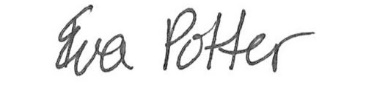 Eva Potter